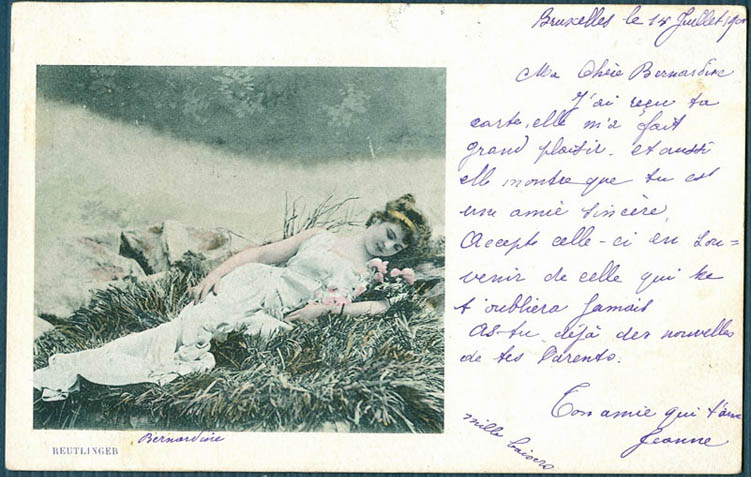 Bruxelles le 14 Juillet
Ma Chère Bernardine
J'ai reçu ta
carte, elle m'a fait
grand plaisir. et aussi
elle montre que tu est
une amie sincère
Accepte celle-ci en sou=
venir de celle qui ne
t'oubliera jamais
As-tu déjà des nouvelles
de tes Parents.
Ton amie qui t'aime
Jeanne
mille baisers
Bernardine
REUTLINGER